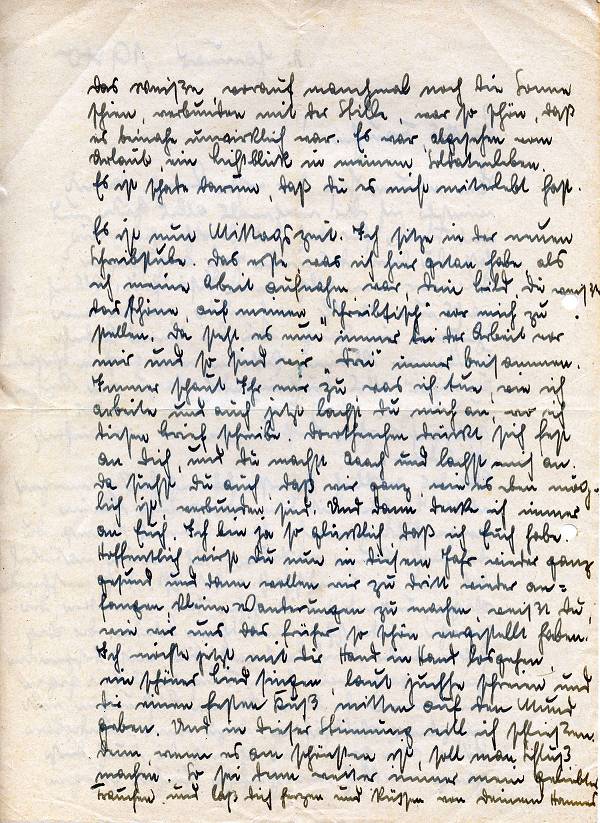 das weißen worauf manchmal noch die Sonne
schien, verbunden mit der Stille, war so schön, daß
es beinahe unwirklich war. Es war, abgesehen vom
Urlaub, ein Lichtblick in meinem Soldatenleben.
Es ist schade darum, daß du es nicht miterlebt hast.
Es ist nun Mittagszeit. Ich sitze in der neuen
Schreibstube. Das erste, was ich hier getan habe als
ich meine Arbeit aufnahm war dein Bild, du weißt
das schöne, auf meinen "Schreibtisch" vor mich zu
stellen. Da steht es nun immer bei der Arbeit vor
mir und so sind wir "Drei" immer beisammen.
Immer schaut Ihr mir zu was ich tue, wie ich
arbeite und auch jetzt lachst du mich an, wo ich
diesen Brief schreibe. Dorthchen drückt sich fest
an Dich, und du machst und lachst mich an.
Da siehst du auch, daß wir ganz, wie es eben mög-
lich ist, verbunden sind. Und dann denke ich immer
an Euch. Ich bin ja so glücklich, daß ich Euch habe.
Hoffentlich wirst du nun in diesem Jahr wieder ganz
gesund und dann wollen wir zu dritt wieder an=
fangen kleine Wanderungen zu machen, weißt du,
wie wir uns das früher so schön vorgestellt haben.
Ich möchte jetzt mit dir Hand in Hand losgehen,
ein schönes Lied singen, laut juchhe schreien und
dir einen festen Kuß mitten auf den Mund
geben. Und in dieser Stimmung will ich schließen.
Denn, wenn es am schönsten ist, soll man Schluß
machen. So sei denn weiter immer mein geliebtes
Frauchen und laß dich herzen und küssen von Deinem Hannes